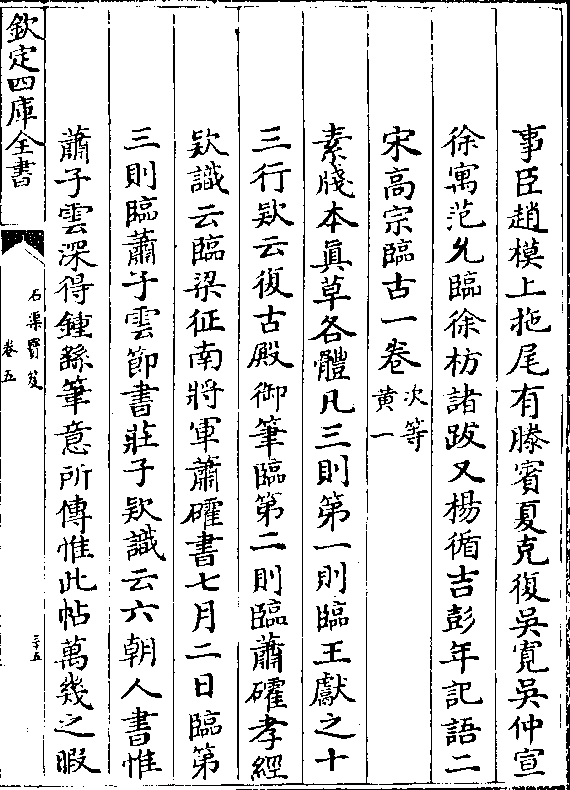 事臣趙模上拖尾有滕賓夏克復吳寛吳仲宣
徐寓范允臨徐枋諸跋又楊循吉彭年記語二
宋高宗臨古一卷次等
黄一
素牋本眞草各體凡三則第一則臨王獻之十
三行欵云復古殿御筆臨第二則臨蕭確孝經
欵識云臨梁征南將軍蕭確書七月二日臨第
三則臨蕭子雲節書莊子欵識云六朝人書惟
蕭子雲深得鍾繇筆意所傳惟此帖萬幾之暇
欽定四庫全書
石渠寶笈
卷五
三十五